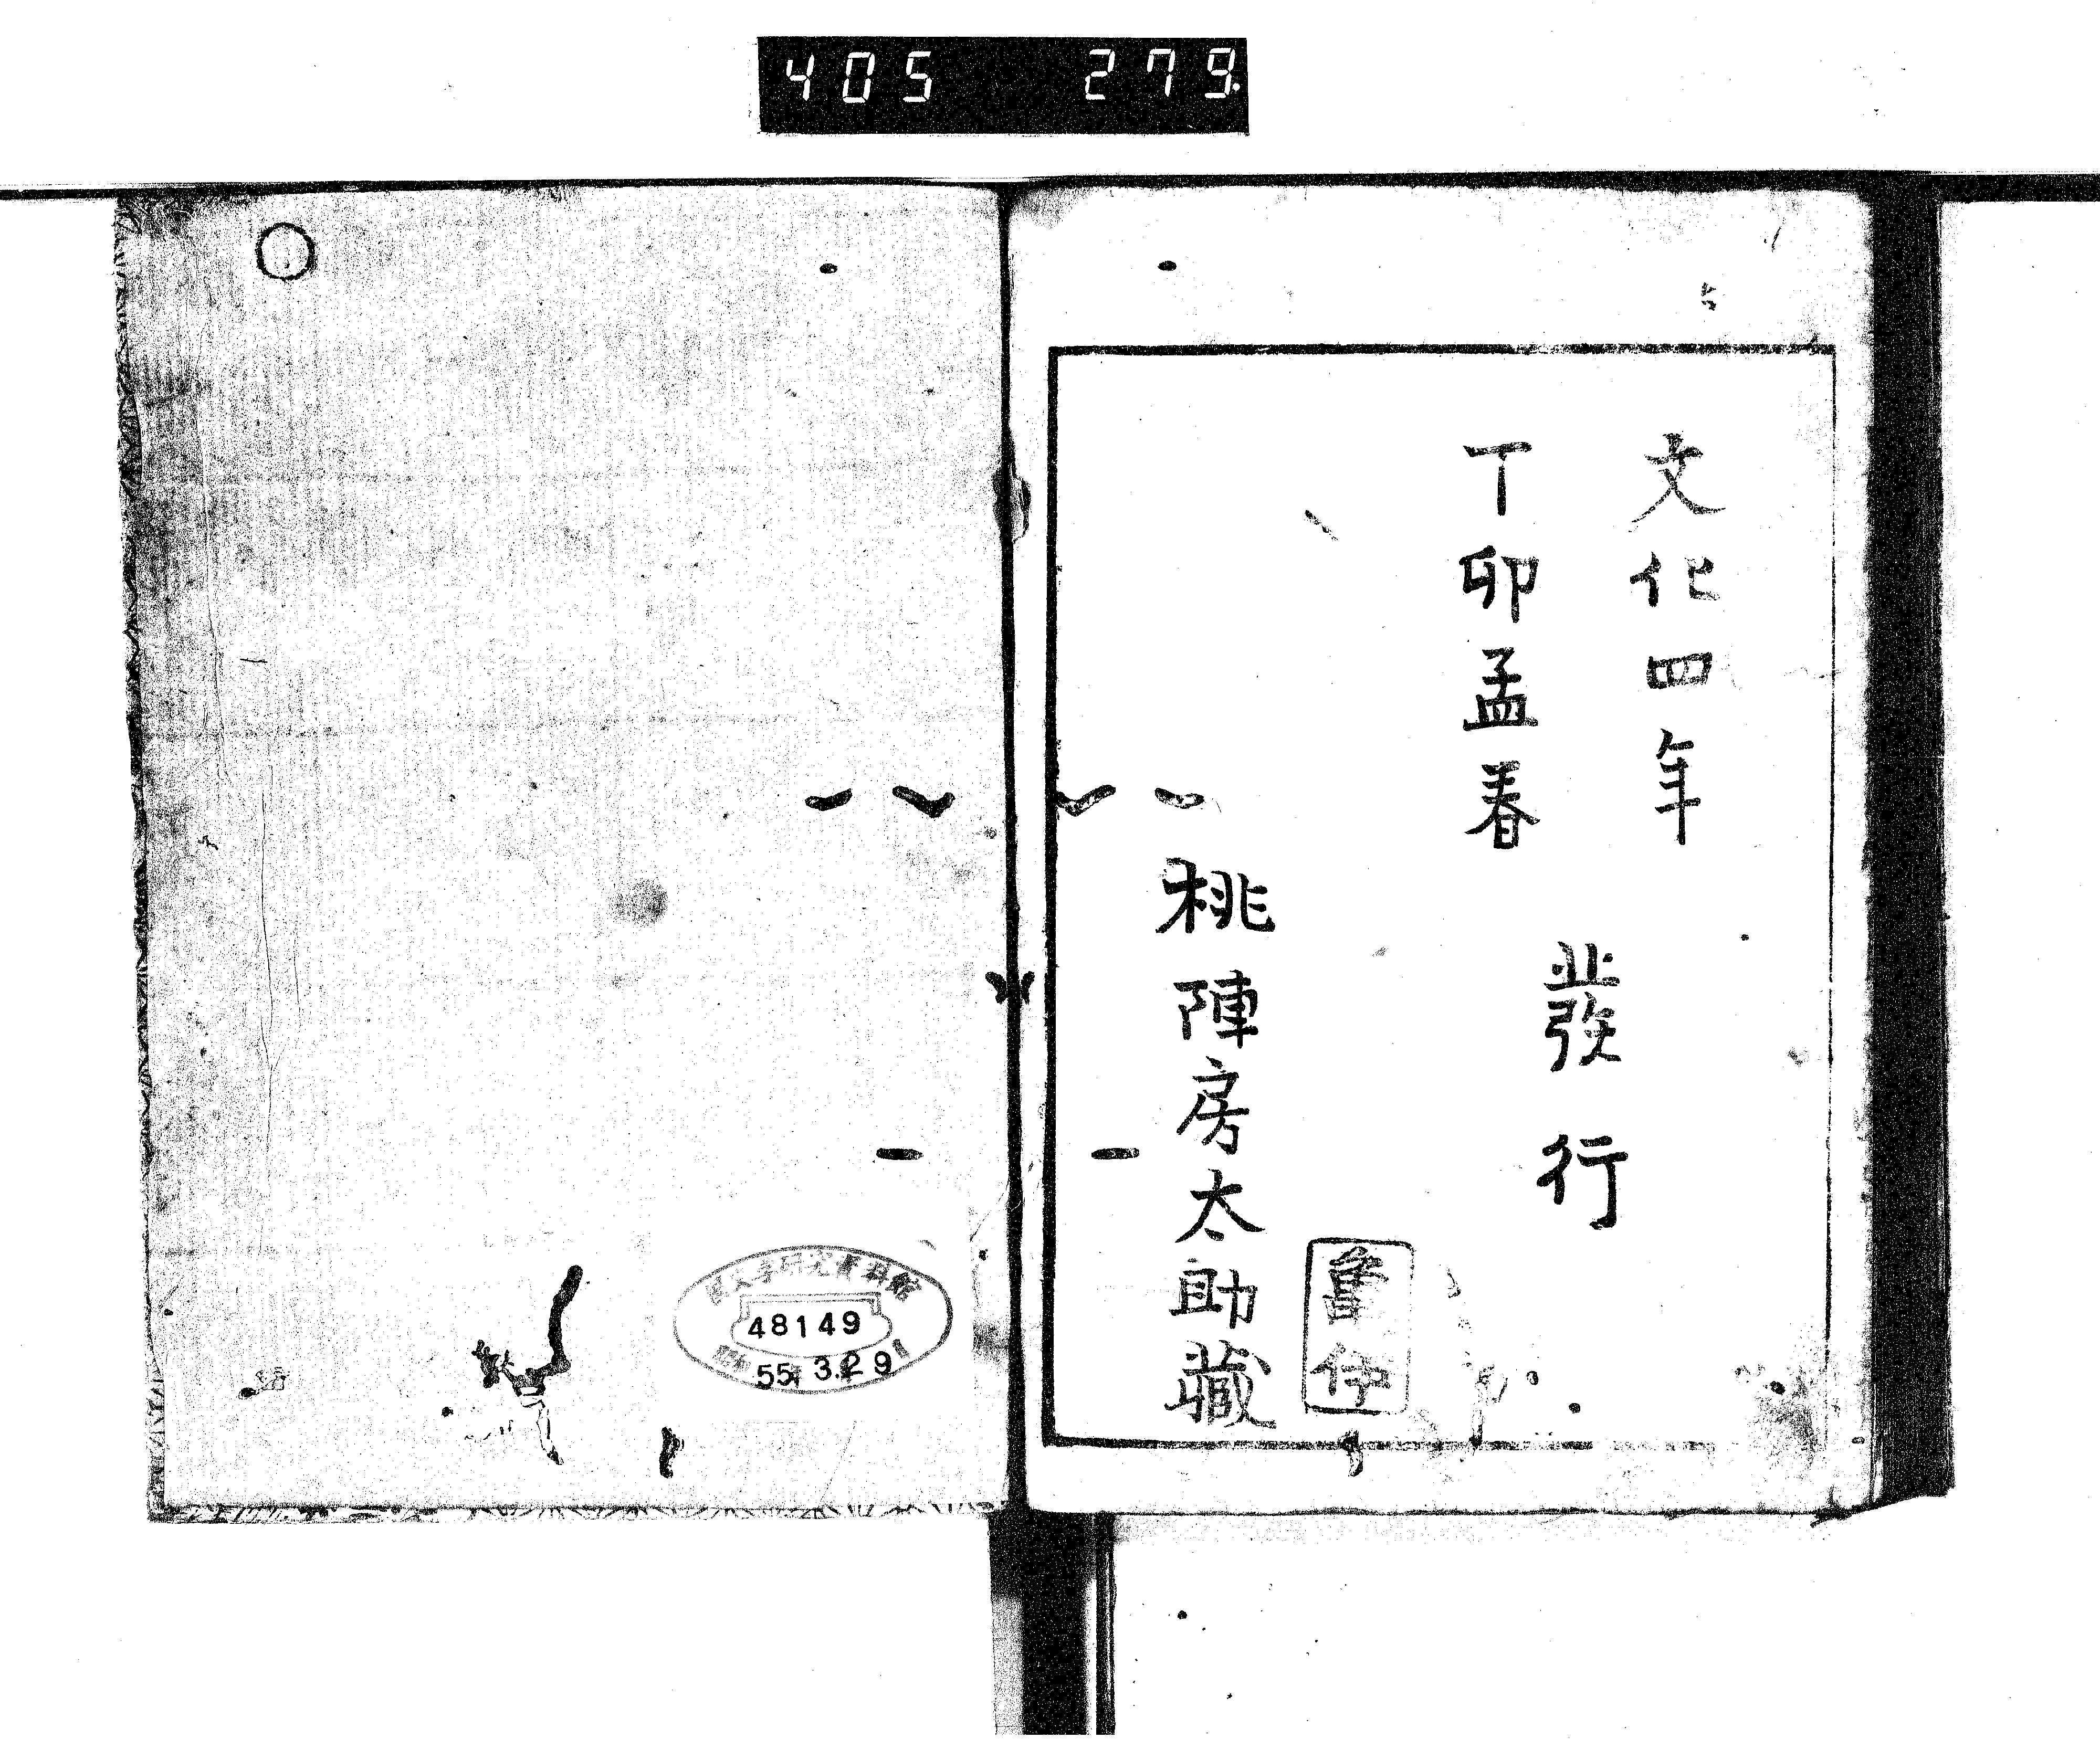 405 279
文化四年
丁卯孟春
發行
桃陣房太助藏
國文學研究資料館
48149
55. 3.29